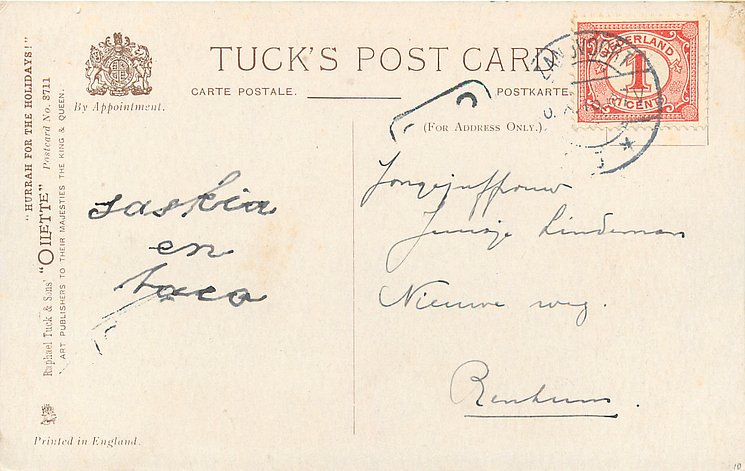 TUCK'S POST CARD
CARTE POSTALE.
POSTKARTE.
(FOR ADDRESS ONLY.)
By Appointment.
"HURRAH FOR THE HOLIDAYS!"
Postcard No. 8711
Raphael Tuck & Sons' "OILETTE"
ART PUBLISHERS TO THEIR MAJESTIES THE KING & QUEEN.
NEDERLAND
1
1 CENT
saskia
en
taco
Jongejuffrouw
Lindeman
Nieuwe weg.
Renkum.
Printed in England.
10